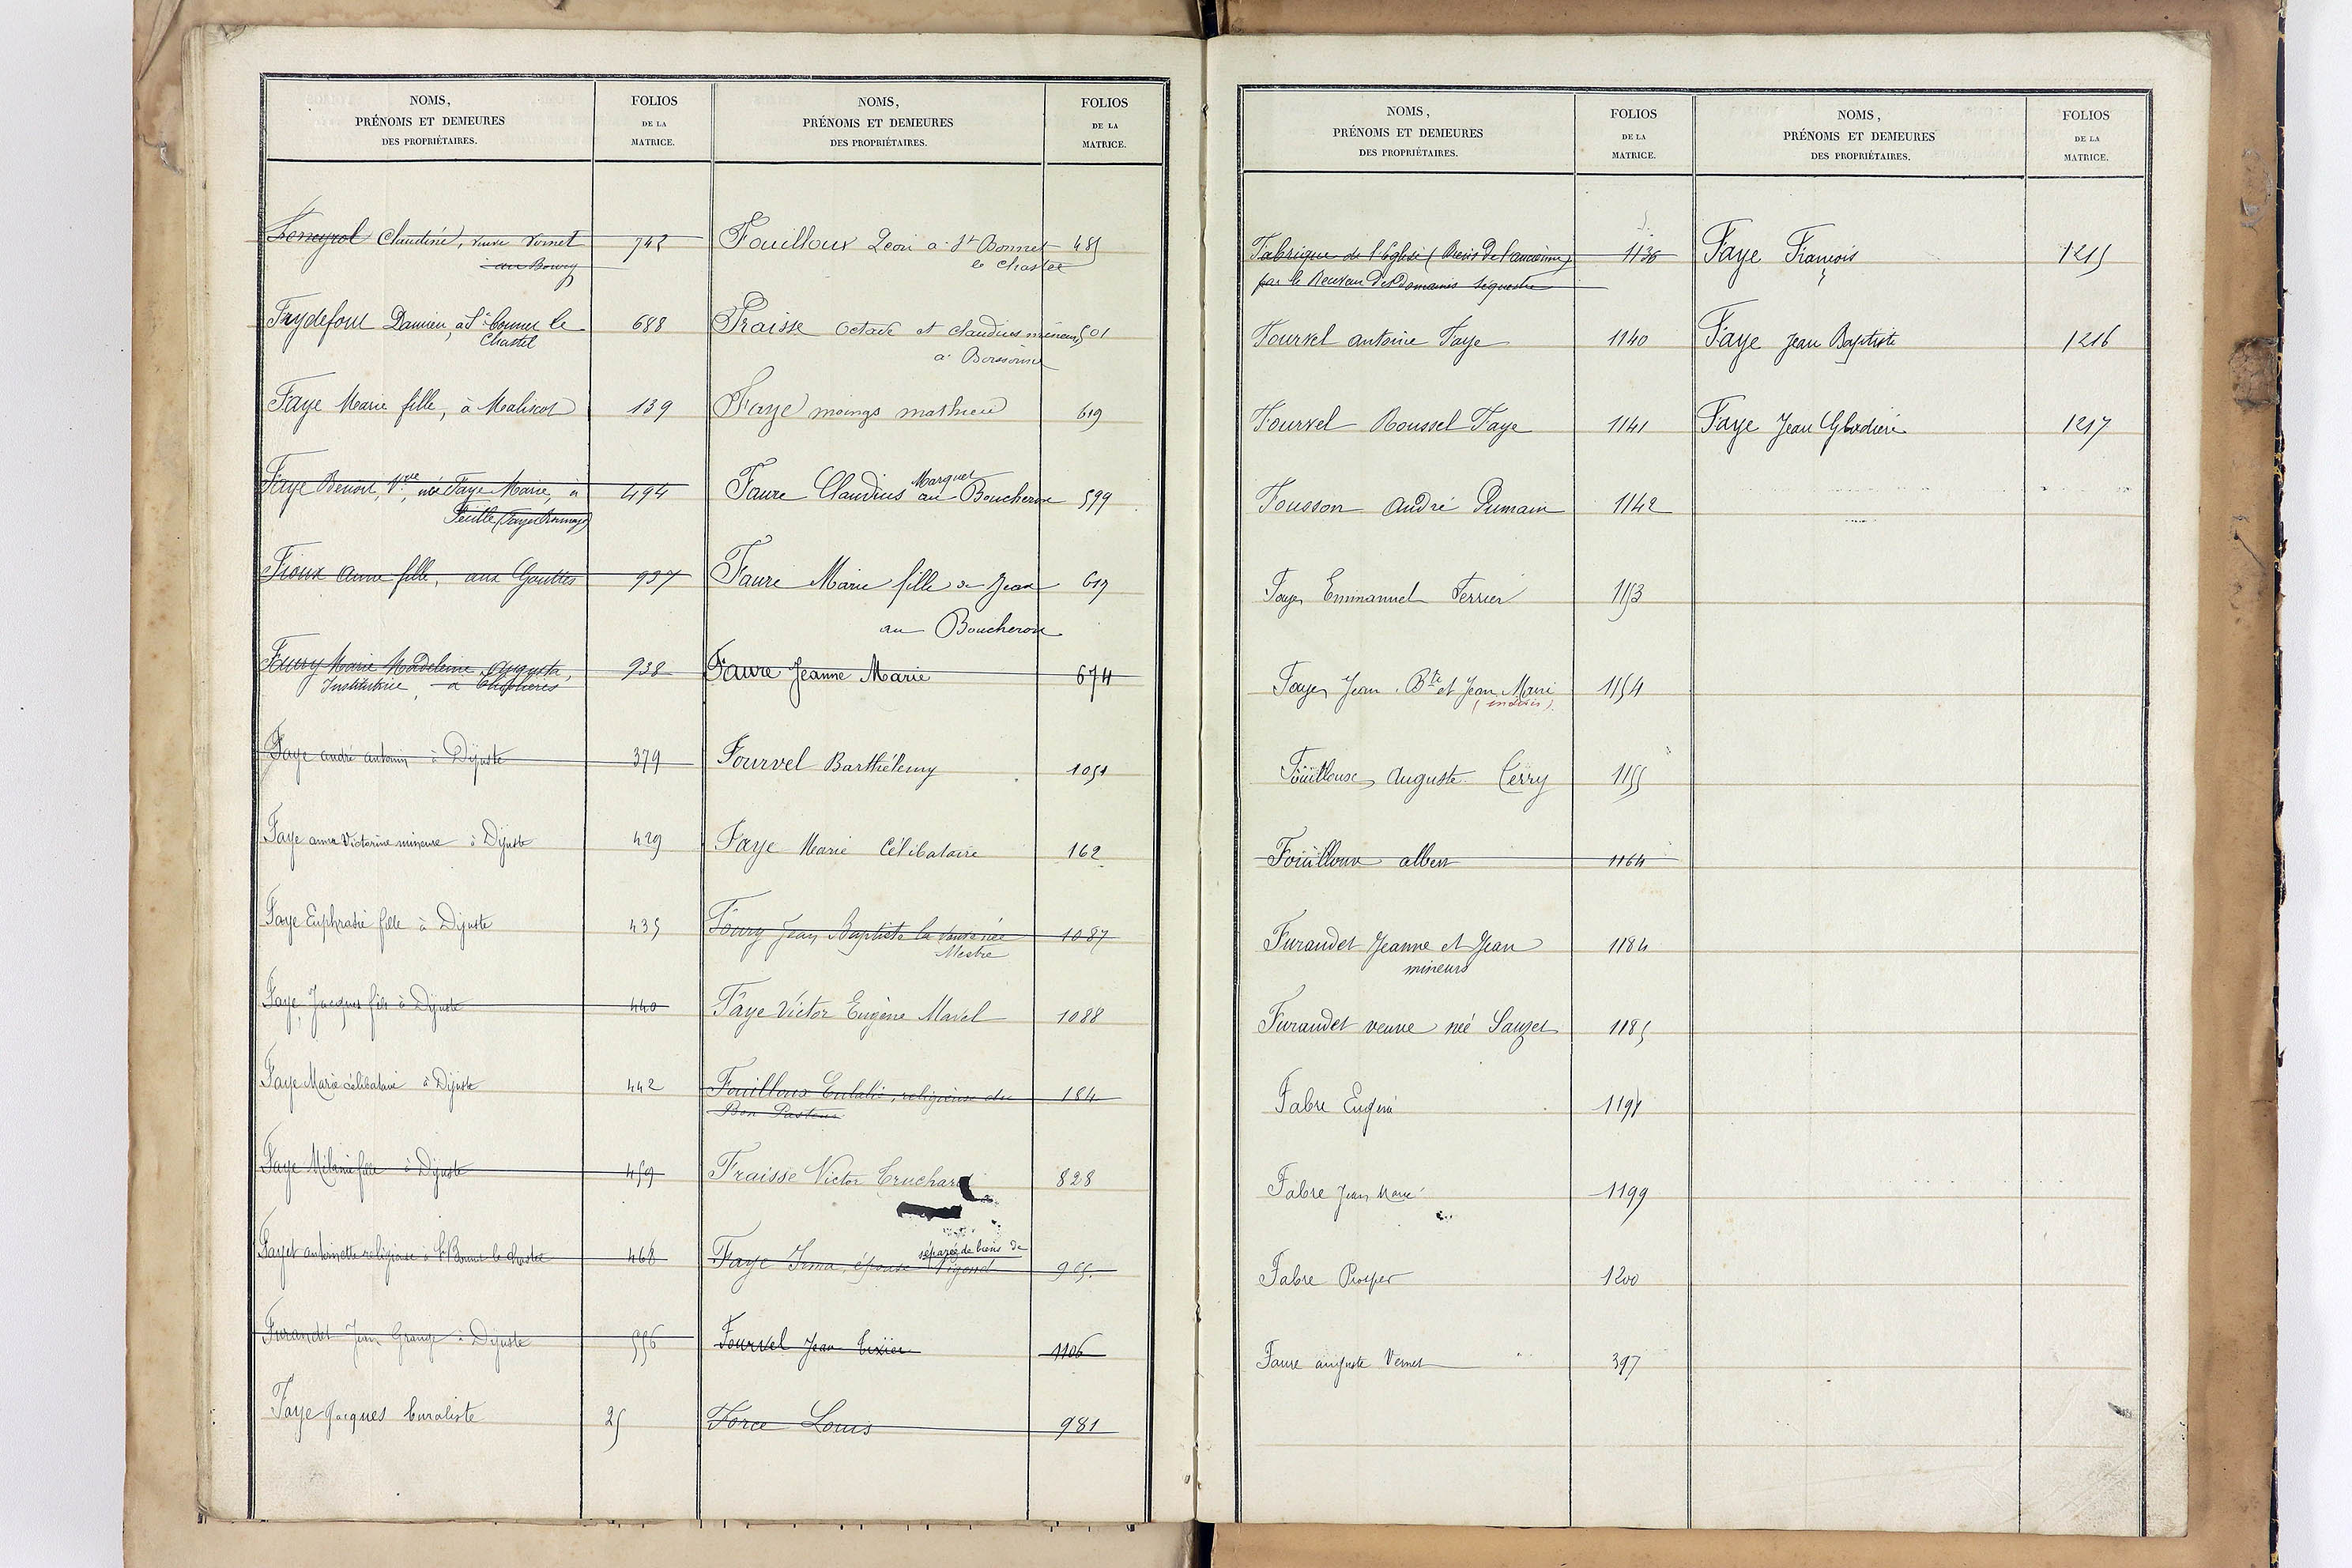 NOMS,
PRÉNOMS ET DEMEURES
DES PROPRIÉTAIRES.
FOLIOS
DE LA
MATRICE.
Claudine, veuve Vernet 742
au Bourg
Damien, à St bonnet le 688
Chastel
Faye Marie fille, à Maliscot 139
Faye Benoit, Vve, née Faye Marie, à 494
Fioux Anne fille, aux Gouttes 937
Foury Marie Madeleine Augusta, 938
Institutrice, à
Faye andré antonin à Dijuste 379
Faye anna Victorine mineure à Dijuste 429
Faye Euphrasie fille à Dijuste 435
Faye Jacques fils à Dijuste 440
Faye Marie célibataire à Dijuste 442
Faye Mélanie fille à Dijuste 459
Fayet antoinette religieuse à St Bonnet le chastel 468
Furandet Jean Grange à Dijuste 556
Faye Jacques buraliste 25
NOMS,
PRÉNOMS ET DEMEURES
DES PROPRIÉTAIRES.
FOLIOS
DE LA
MATRICE.
Fouilloux Léon à St Bonnet 485
le Chastel
Fraisse Octave et Claudius mineurs 501
à
Faye moings mathieu 619
Marquet
Faure Claudius au Boucheron 599
Faure Marie fille de Jean 619
au Boucheron
Faure Jeanne Marie 674
Fourvel Barthélemy 1051
Faye Marie Célibataire 162
Foury Jean Baptiste la veuve née 1087
Mestre
Faye Victor Eugène Mavel 1088
Fouilloux Eulalie, religieuse du 184
Bon Pasteur
Fraisse Victor Cruchard 828
séparée de biens de
Faye Irma, épouse Vigond
Fourvel Jean Tixier 1106
Force Louis 981
NOMS,
PRÉNOMS ET DEMEURES
DES PROPRIÉTAIRES.
FOLIOS
DE LA
MATRICE.
Fabrique de l'Eglise (Biens de l'ancienne) 1136
par le Bureau des Domaines séquestre
Fourvel antoine Faye 1140
Fourvel Roussel Faye 1141
Fousson André Dumain 1142
Faye Emmanuel Ferrier 1153
Faye Jean Bte et Jean Marie 1154
(indivis)
Fouilloux Auguste Cerry 1155
Fouilloux albert 1164
Furandet Jeanne et Jean 1184
mineurs
Furandet veuve née Sauzet 1185
Fabre Eugène 1198
Fabre Jean Marie 1199
Fabre Prosper 1200
Faure auguste Vernet 397
NOMS,
PRÉNOMS ET DEMEURES
DES PROPRIÉTAIRES.
FOLIOS
DE LA
MATRICE.
Faye François 1215
Faye Jean Baptiste 1216
Faye Jean 1217